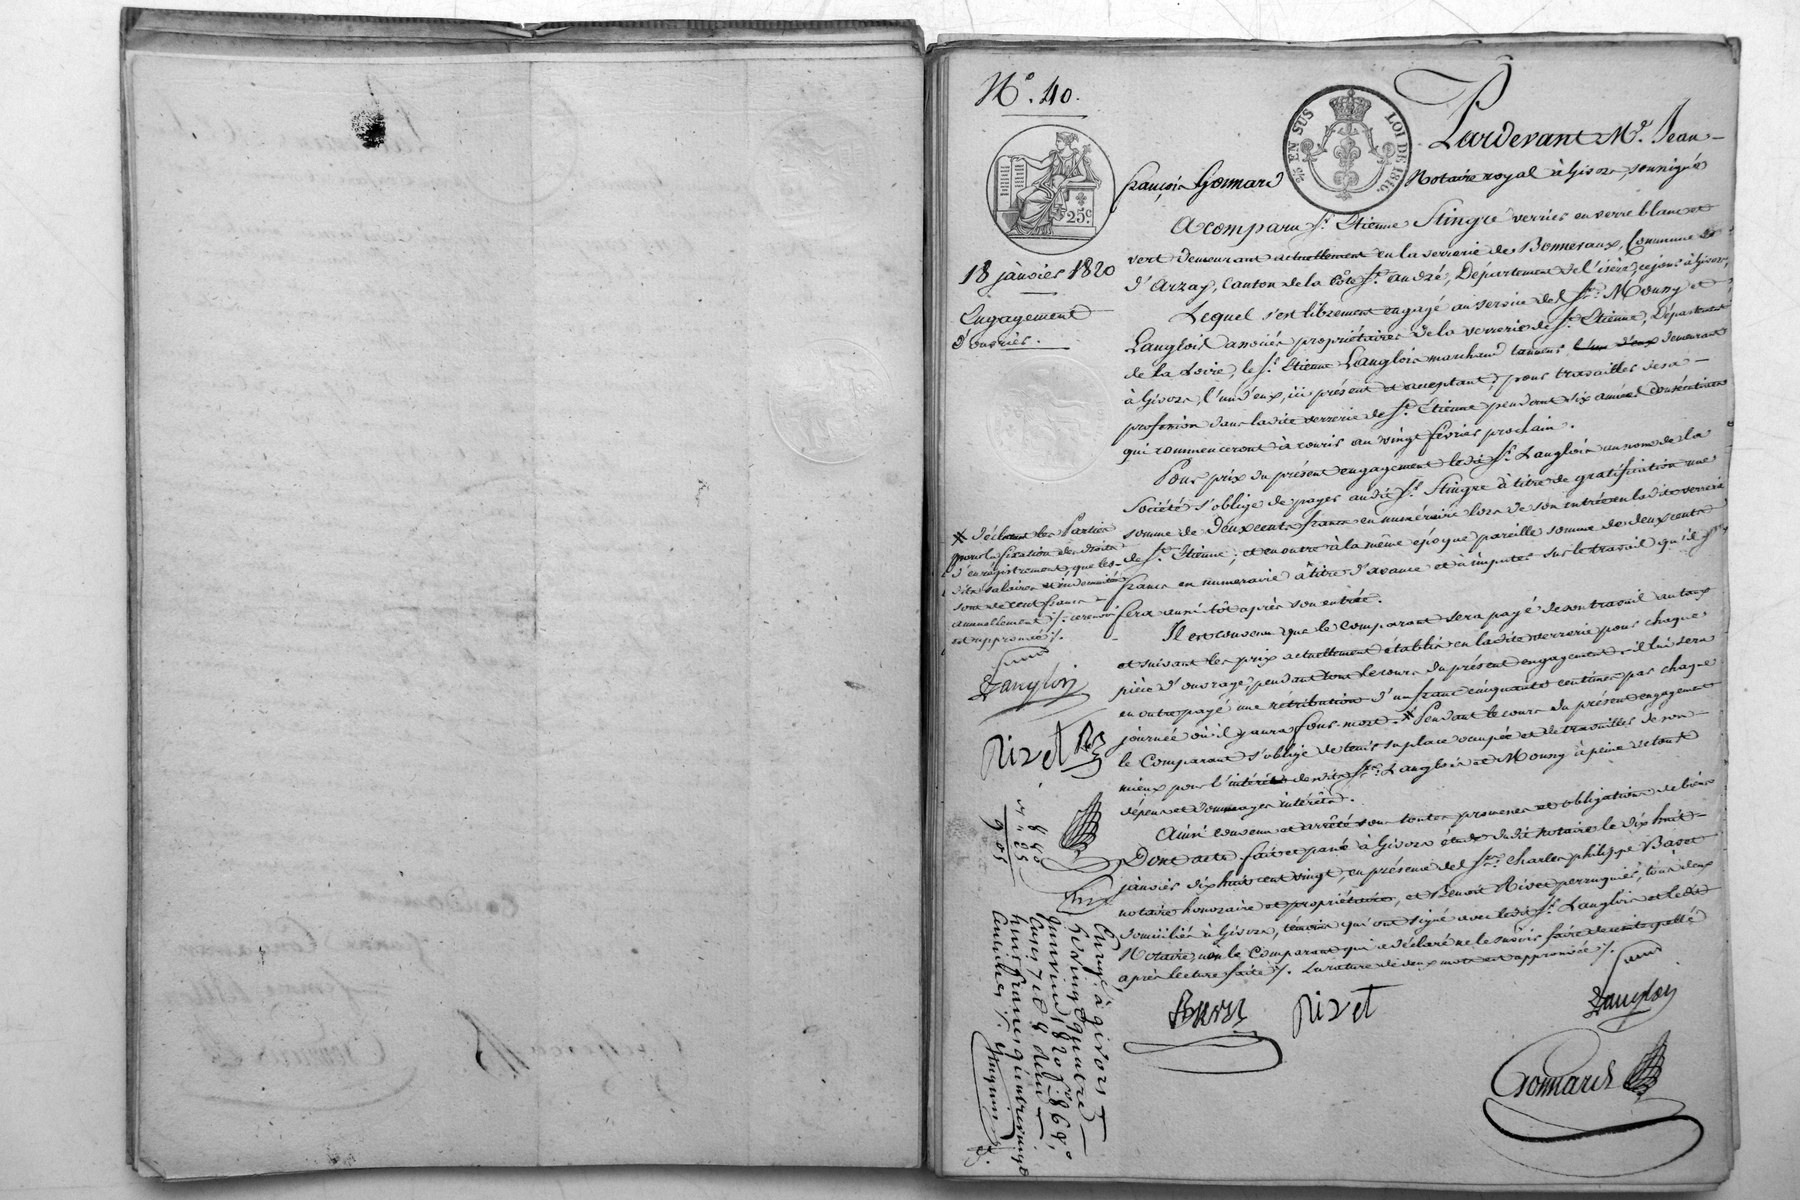 N.° 40.
EN SUS
LOI DE 1816.
25c
Pardevant M.e Jean-
françois Gonnard Notaire royal à Givors, soussigné
A comparu S.r Etienne Stingre verrier en verre blanc et
vert demeurant actuellement en la verrerie de Bonnevaux, Commune
d'Arzay, Canton de la Côte S.t andré, Département de l'isère, ce jour à Givors,
Lequel s'est librement engagé au service des S.rs Mouny et
Langlois associés propriétaires de la verrerie de S.t Etienne, Département
de la Loire, le S.r Etienne Langlois marchand tanneur l'un d'eux demeurant
à Givors, l'un d'eux, ici présent et acceptant, pour travailler de sa
profession dans la dite verrerie de S.t Etienne pendant six années consécutives
qui commenceront à courir au vingt février prochain.
Pour prix du présent engagement ledit S.r Langlois au nom de la
Société s'oblige de payer audit S.r Stingre à titre de gratification une
somme de deux cents francs en numéraire lors de son entrée en la dite verrerie
de S.t Etienne; et en outre à la même époque pareille somme de deux cents
francs en numeraire à titre d'avance et à imputer sur le travail qu'il y
fera aussitôt après son entrée.
Il est convenu que le comparant sera payé de son travail au taux
et suivant les prix actuellement établis en la dite verrerie pour chaque
pièce d'ouvrage, pendant tout le cours du présent engagement, il lui sera
en outre payé une rétribution d'un franc cinquante centimes par chaque
journée où il y aura four mort. * Pendant le cours du présent engagement
le Comparant s'oblige de tenir sa place occupée et de travailler de son
mieux pour l'intérêt desdits S.rs Langlois et Mouny à peine de tous
dépens et dommages intérêts.
Ainsi convenu et arrêté sous toutes promesses et obligations de biens
Dont acte fait et passé à Givors étude dudit notaire le dix huit
janvier dix huit cent vingt, en présence des S.rs Charles philippe Basset
notaire honoraire et propriétaire, et Benoit Rivet perruquier, tous deux
domiciliés à Givors, témoins qui ont signé avec ledit S.r Langlois et ledit
Notaire, non le Comparant qui a déclaré ne le savoir faire de ce interpellé
après lecture faite ./. La rature de deux mots est approuvée ./.
Rivet
Langlois
Gonnard
18 janvier 1820
Engagement
d'ouvrier.
* Déclarent les Parties
pour la fixation des droits
d'enrégistrement, que les
dits salaires et indemnités
sont de cent francs
annuellement ./. ce renvoi
est approuvé ./.
Langlois
Rivet
9 05
Enreg.é à givors
le vingt quatre
janvier 1820 f.o 86 v.o,
Case 7 reçu
huit francs quatre vingt
centimes ./.